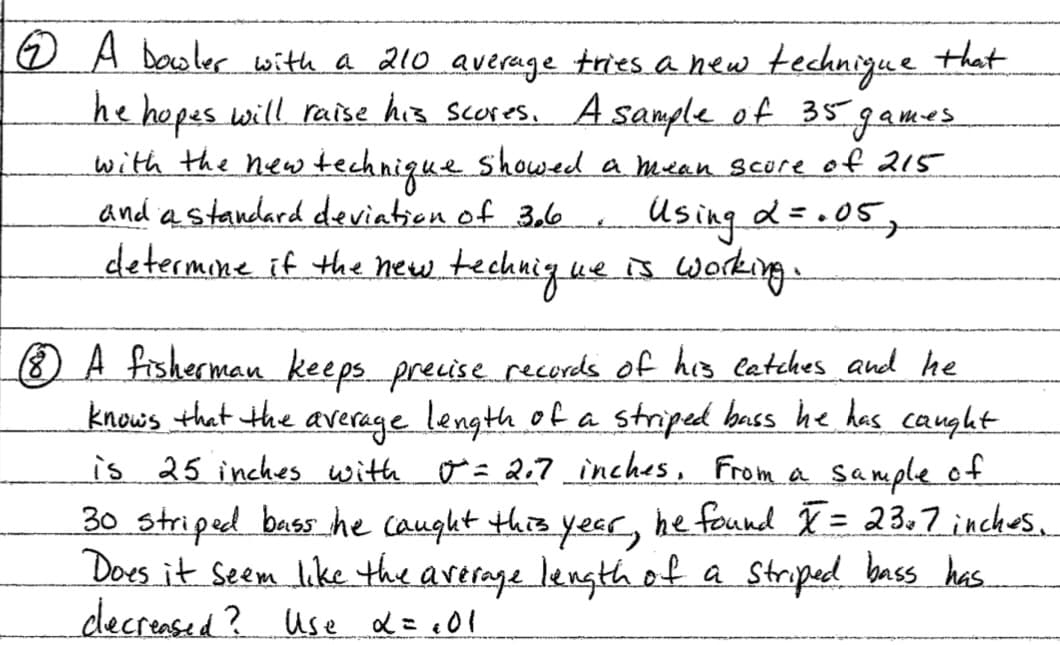 ⑦ A bowler with a 210 average tries a new technique that
he hopes will raise his scores. A sample of 35 games
with the new technique showed a mean score of 215
and a standard deviation of 3.6. Using α = .05,
determine if the new technique is working.
⑧ A fisherman keeps precise records of his catches and he
knows that the average length of a striped bass he has caught
is 25 inches with σ = 2.7 inches. From a sample of
30 striped bass he caught this year, he found x̄ = 23.7 inches.
Does it seem like the average length of a striped bass has
decreased? Use α = .01